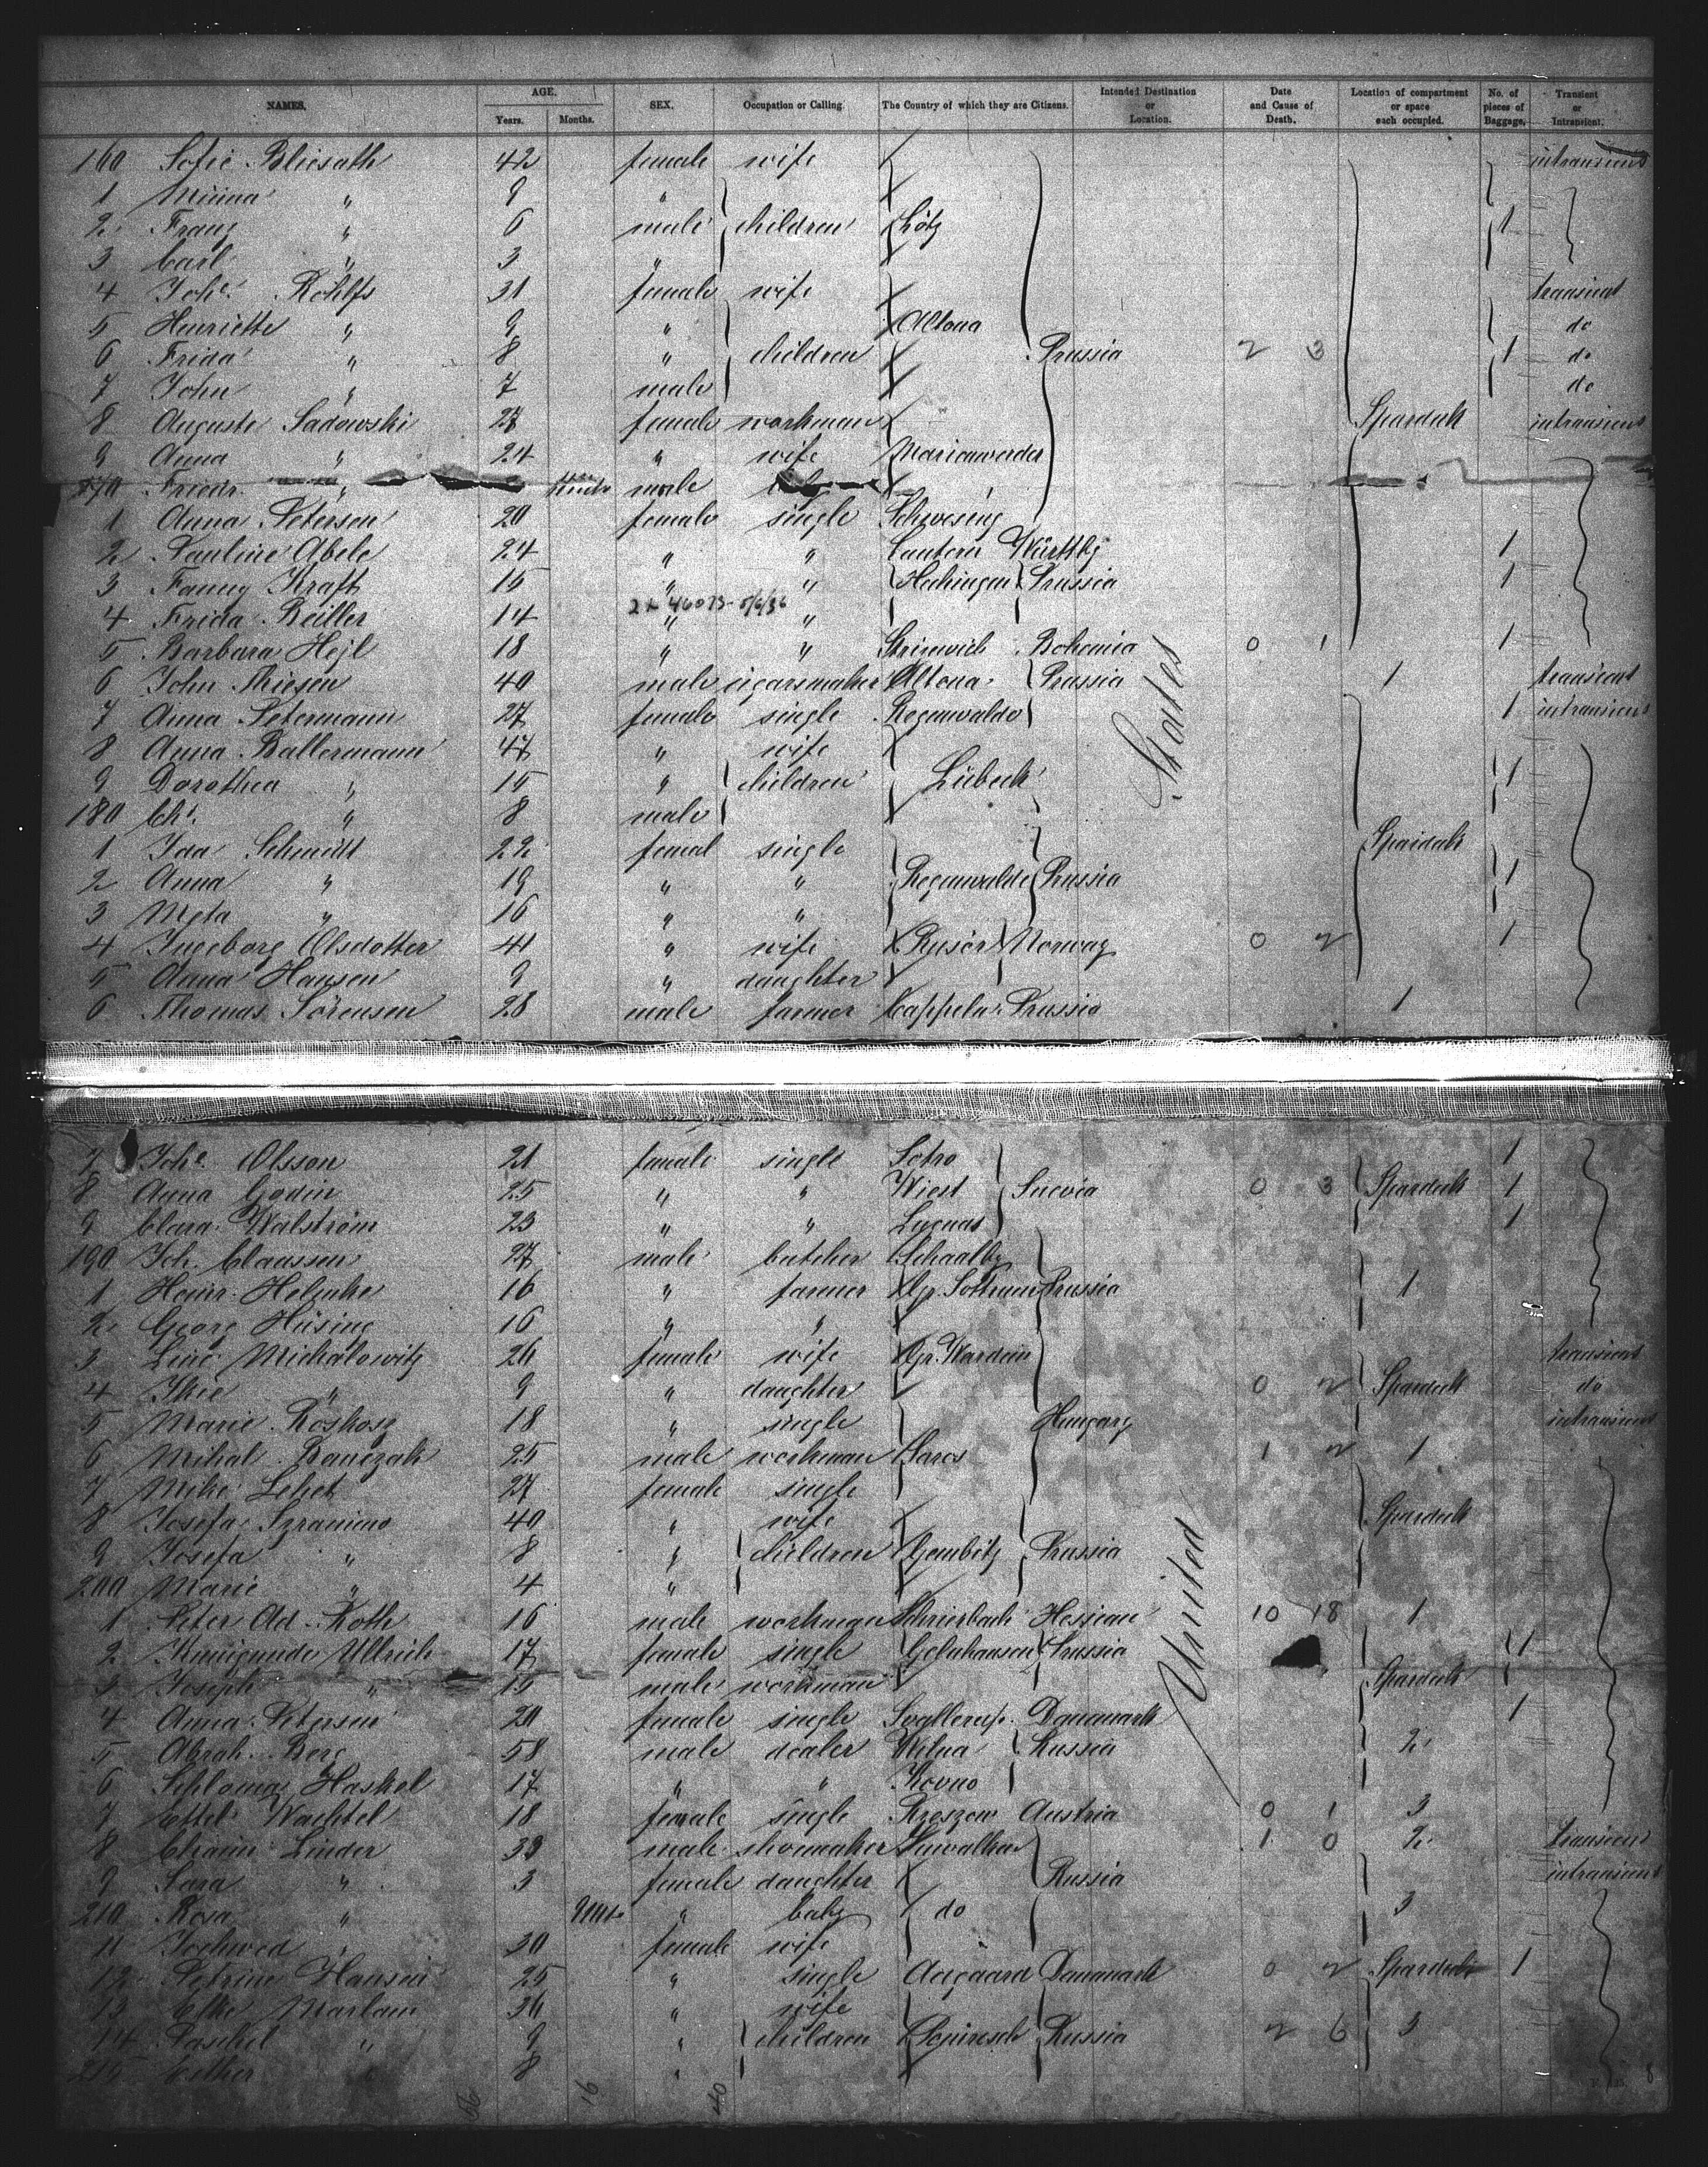 NAMES. AGE. Years. Months. SEX. Occupation or Calling. The Country of which they are Citizens. Intended Destination or Location. Date and Cause of Death. Location of compartment or space each occupied. No. of pieces of Baggage. Transient or Intransient.
160 Sofie Bliesath 42 female wife intransient
1 Minna " 9 "
2 Franz " 6 male children Lötz 1
3 Carl " 3 "
4 Johe. Rohlfs 31 female wife transient
5 Henriette " 9 " Altona do
6 Frida " 8 " children Prussia 2 3 1 do
7 John " 7 male do
8 Auguste Sadowski 27 female workman Spardeck intransient
9 Anna " 24 " wife Marienwerder
170 Friedr. " male
1 Anna Petersen 20 female single Schwesing
2 Pauline Abele 24 " " Lautern Württbg 1
3 Fanny Kraft 15 " " Hechingen Prussia 1
2x 46073-5/6/36
4 Frida Beiller 14 " "
5 Barbara Hejl 18 " " Bohemia 0 1 1
6 John Thiesen 40 male cigarsmaker Altona Prussia 1 transient
7 Anna Petermann 27 female single Regenwalde 1 intransient
8 Anna Ballermann 47 " wife
9 Dorothea " 15 " children Lübeck 1
180 Chr. " 8 male
1 Ida Schmidt 22 femal single Spardeck
2 Anna " 19 " " Regenwalde Prussia 1
3 Meta " 16 " "
4 Ingeborg Olsdotter 41 " wife Rusör Norway 0 2 1
5 Anna Hansen 9 " daughter
6 Thomas Sörensen 28 male farmer Cappeln Prussia 1
States
7 Johe. Olsson 21 female single Sotro 1
8 Anna Godin 25 " " Wiest Suevia 0 3 Spardeck 1
9 Clara Walström 23 " " Lugnas 1
190 Joh. Claussen 27 male butcher Schaalby
1 Heinr. Helmke 16 " farmer Gr. Prussia 1
2 Georg Hüsing 16 " "
3 Line Michalowitz 26 female wife Gr. Wardein transient
4 " 9 " daughter 0 2 Spardeck do
5 Marie Roskosz 18 " single Hungary intransient
6 Mihal Banczak 25 male workman Saros 1 2 1
7 Mihe Lehet 27 female single
8 Josefa Szranimo 40 " wife Spardeck
9 Josefa " 8 " children Gembitz Prussia
200 Marie " 4 "
1 Peter Ad. Roth 16 male workman Hessian 10 18 1
2 Kunigunde Ullrich 17 female single Gelnhausen Prussia 1
3 Joseph " 15 male workman Spardeck
4 Anna Petersen 20 female single Danemark 1
5 Abrah. Berg 58 male dealer Wilna Russia 2
6 Schloma Haskel 17 " " Kovno
7 Ettel Wachtel 18 female single Austria 0 1 3
8 Chaim Linder 33 male shoemaker Suwalken 1 0 2 transient
9 Sara " 3 female daughter Russia intransient
210 Rosa " " baby do 3
11 Jochwed " 30 female wife
12 Petrine Hansen 25 " single Aagaard Danemark 0 2 Spardeck 1
13 Efke Marlam 36 " wife
14 Paschel " 9 " children Russia 2 6 3
215 Esther " 8 "
United
16 40
8